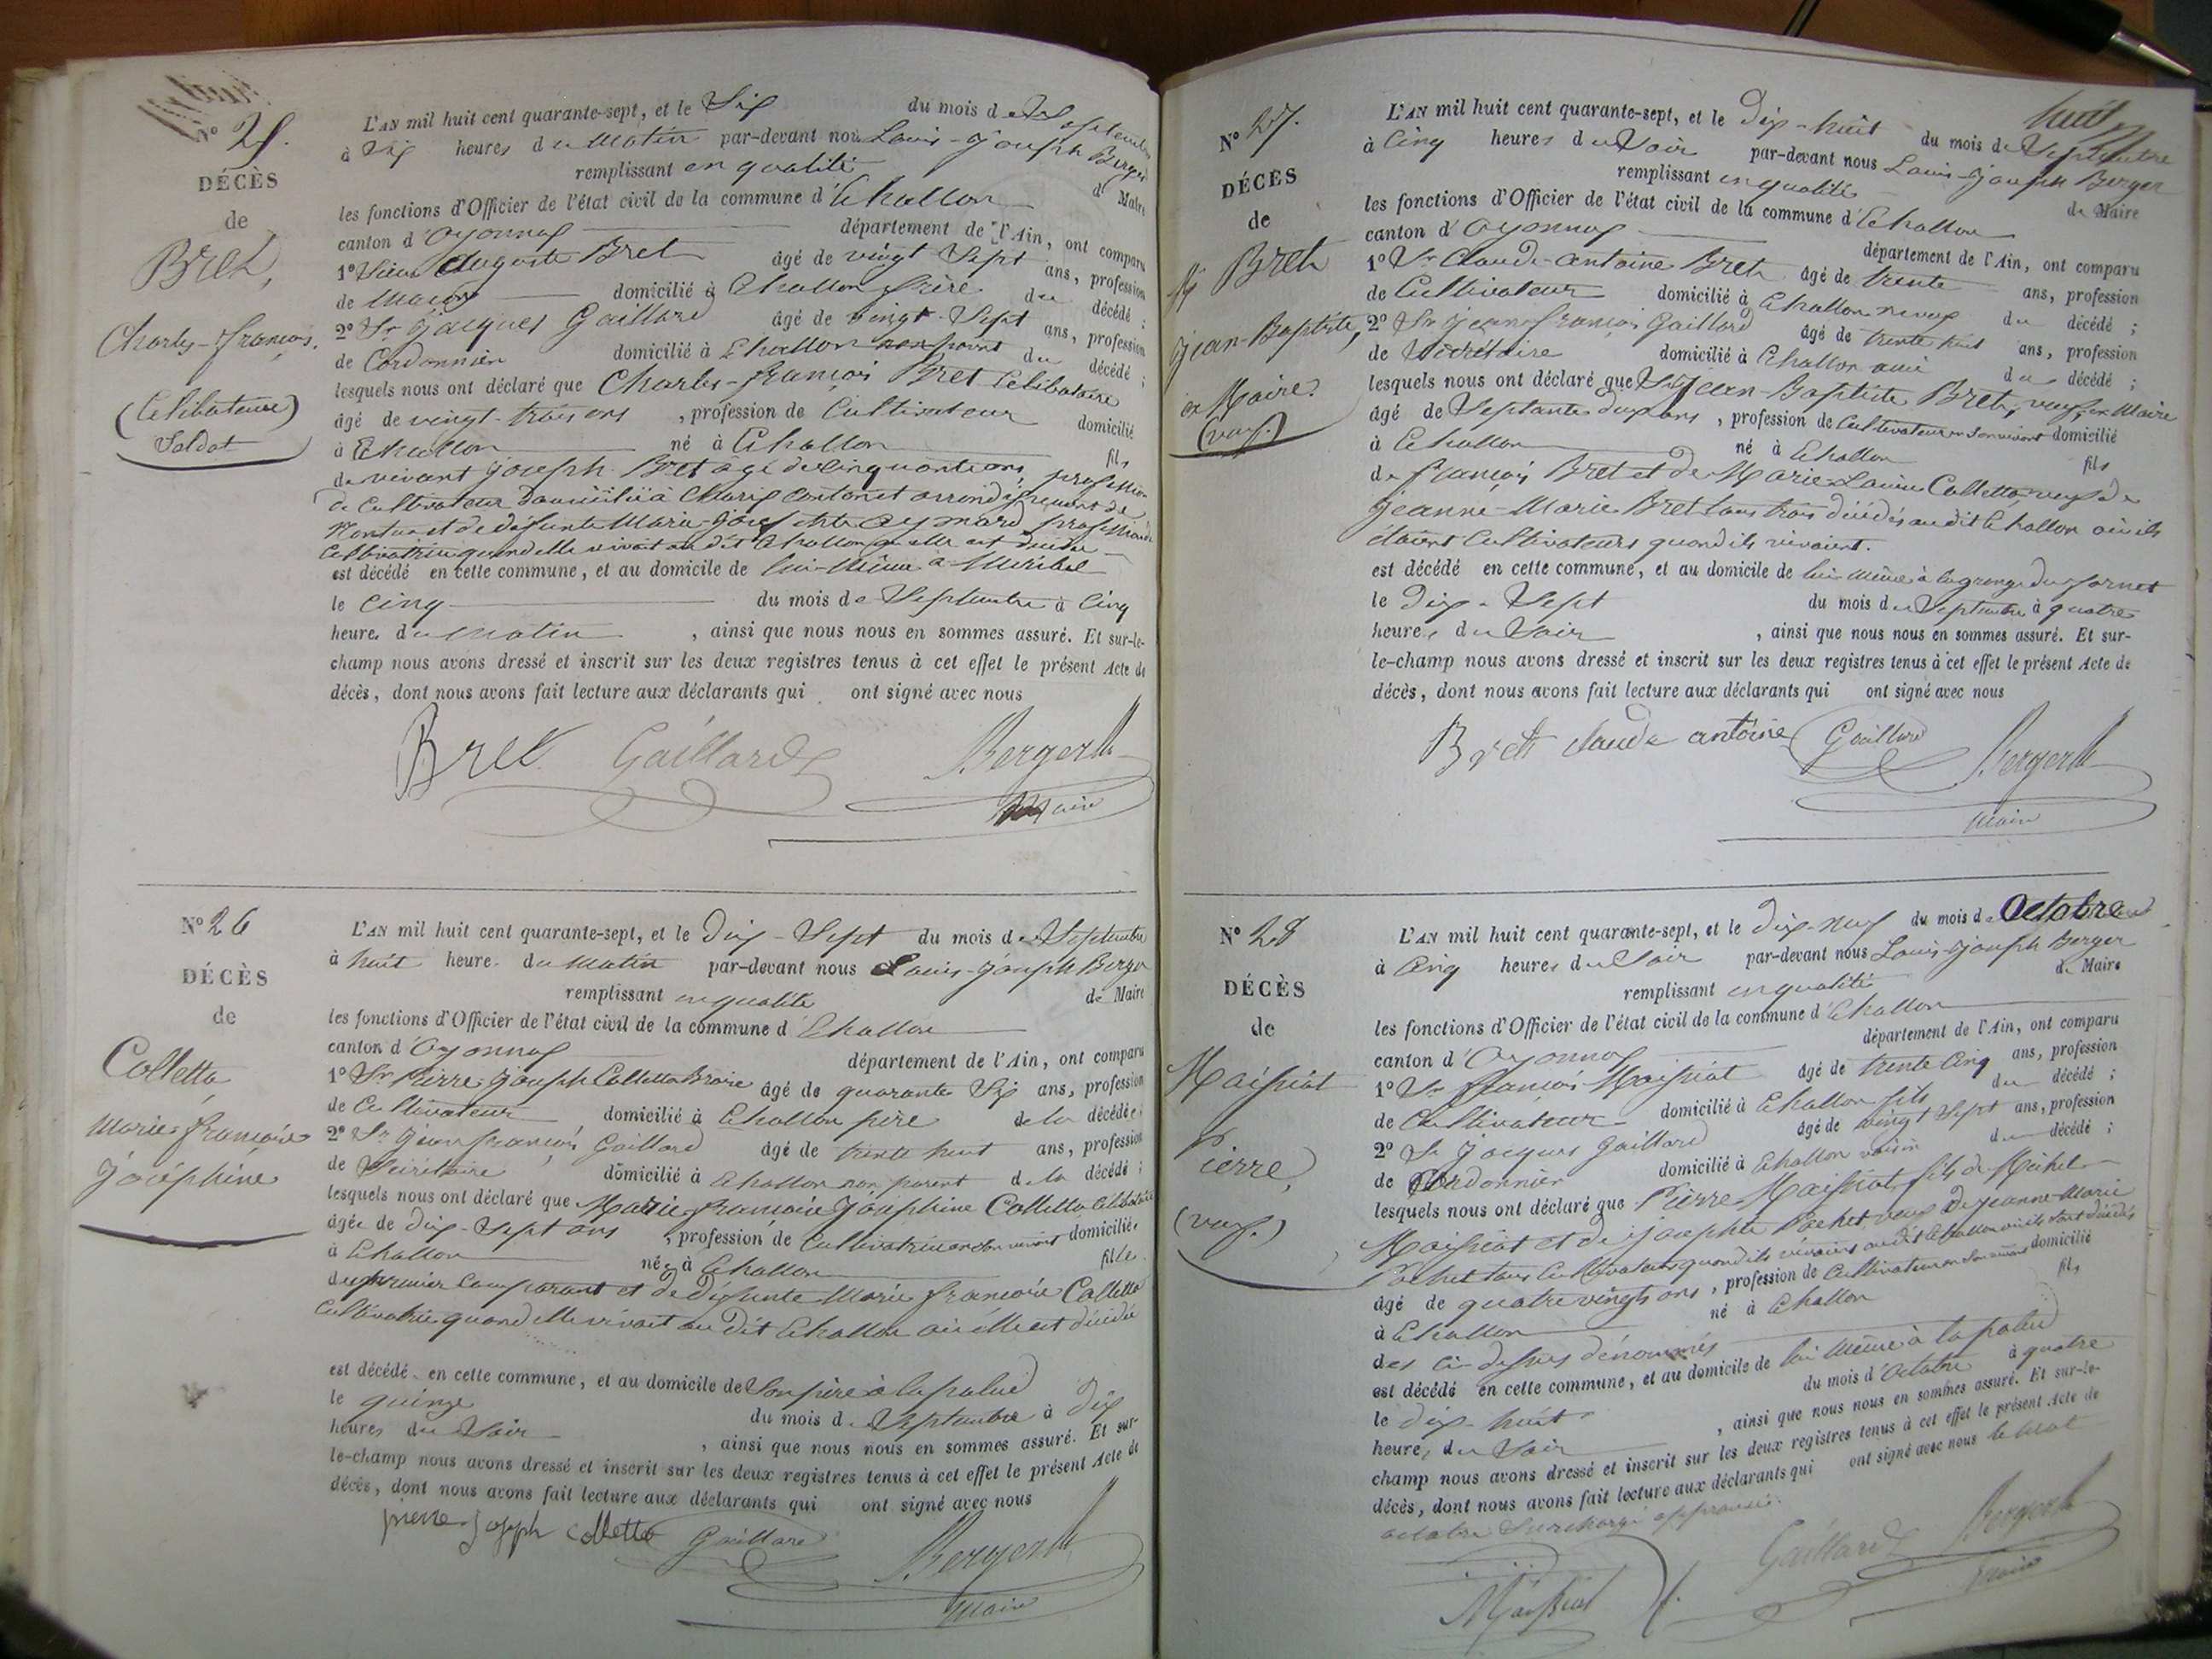 N° 25.
DÉCÈS
de
Bret,
Charles-françois.
(Célibataire)
Soldat
L'AN mil huit cent quarante-sept, et le Six du mois de Septembre
à Six heures du Matin par-devant nous Louis-Joseph Berger
remplissant en qualité de Maire
les fonctions d'Officier de l'état civil de la commune d'Echallon
canton d'Oyonnax département de l'Ain, ont comparu
1° Sieur Auguste Bret âgé de vingt Sept ans, profession
de Maçon domicilié à Echallon frère du décédé ;
2° Sr. Jacques Gaillard âgé de vingt-Sept ans, profession
de Cordonnier domicilié à Echallon non parent du décédé ;
lesquels nous ont déclaré que Charles-françois Bret Célibataire
âgé de vingt-trois ans, profession de Cultivateur domicilié
à Echallon né à Echallon fils
de vivant Joseph Bret âgé de cinquante ans, profession
de Cultivateur domicilié à Charix Canton et arrondissement de
Nantua et de défunte Marie-Josephte Aymard profession de
Cultivatrice quand elle vivait au dit Echallon où elle est décédée
est décédé en cette commune, et au domicile de lui-Même à Meribel
le Cinq du mois de Septembre à Cinq
heures du matin, ainsi que nous nous en sommes assuré. Et sur-le-
champ nous avons dressé et inscrit sur les deux registres tenus à cet effet le présent Acte de
décès, dont nous avons fait lecture aux déclarants qui ont signé avec nous
Bret Gaillard Berger
Maire
N° 26
DÉCÈS
de
Colletta
Marie-françoise
Joséphine
L'AN mil huit cent quarante-sept, et le Dix-Sept du mois de Septembre
à huit heures du Matin par-devant nous Louis-Joseph Berger
remplissant en qualité de Maire
les fonctions d'Officier de l'état civil de la commune d'Echallon
canton d'Oyonnax département de l'Ain, ont comparu
1° Sr. Pierre-Joseph Colletta âgé de quarante Six ans, profession
de Cultivateur domicilié à Echallon père de la décédée ;
2° Sr. Jean françois Gaillard âgé de trente huit ans, profession
de Secrétaire domicilié à Echallon non parent de la décédé ;
lesquels nous ont déclaré que Marie françoise Joséphine Colletta Célibataire
âgée de dix-Sept ans, profession de Cultivatrice en Son vivant domiciliée
à Echallon née à Echallon fille
du premier Comparant et de Défunte Marie françoise Colletta
Cultivatrice quand elle vivait au Dit Echallon où elle est décédée
est décédé en cette commune, et au domicile de Son père à la palud
le quinze du mois de Septembre à Dix
heures du Soir, ainsi que nous nous en sommes assuré. Et sur-
le-champ nous avons dressé et inscrit sur les deux registres tenus à cet effet le présent Acte de
décès, dont nous avons fait lecture aux déclarants qui ont signé avec nous
pierre Joseph Colletta Gaillard Berger
Maire
huit
N° 27.
DÉCÈS
de
Bret
Jean-Baptiste,
ex Maire.
(veuf.)
L'AN mil huit cent quarante-sept, et le Dix-huit du mois de Septembre
à Cinq heures du Soir par-devant nous Louis-Joseph Berger
remplissant en qualité de Maire
les fonctions d'Officier de l'état civil de la commune d'Echallon
canton d'Oyonnax département de l'Ain, ont comparu
1° Sr. Claude-antoine Bret âgé de trente ans, profession
de Cultivateur domicilié à Echallon neveu du décédé ;
2° Sr. Jean françois Gaillard âgé de trente huit ans, profession
de Secrétaire domicilié à Echallon ami du décédé ;
lesquels nous ont déclaré que Sr. Jean-Baptiste Bret, veuf, ex Maire
âgé de Septante deux ans, profession de Cultivateur en Son vivant domicilié
à Echallon né à Echallon fils
de françois Bret et de Marie Louise Colletta, veuf de
Jeanne-Marie Bret tous trois décédés au dit Echallon où ils
étaient Cultivateurs quand ils vivaient.
est décédé en cette commune, et au domicile de lui même à la grange du fornet
le Dix-Sept du mois de Septembre à quatre
heures du Soir, ainsi que nous nous en sommes assuré. Et sur-
le-champ nous avons dressé et inscrit sur les deux registres tenus à cet effet le présent Acte de
décès, dont nous avons fait lecture aux déclarants qui ont signé avec nous
Bret claude antoine Gaillard Berger
Maire
N° 28
DÉCÈS
de
Maissiat
Pierre,
(veuf.)
L'AN mil huit cent quarante-sept, et le Dix-neuf du mois de Octobre
à Cinq heures du Soir par-devant nous Louis-Joseph Berger
remplissant en qualité de Maire
les fonctions d'Officier de l'état civil de la commune d'Echallon
canton d'Oyonnax département de l'Ain, ont comparu
1° Sr. françois Maissiat âgé de trente Cinq ans, profession
de Cultivateur domicilié à Echallon fils du décédé ;
2° Sr. Jacques Gaillard âgé de vingt Sept ans, profession
de Cordonnier domicilié à Echallon voisin du décédé ;
lesquels nous ont déclaré que Pierre Maissiat, fils de Michel
Maissiat et de Josephte Pochet, veuf de Jeanne-Marie
Pochet tous Cultivateurs quand ils vivaient au Dit Echallon où ils Sont décédés
âgé de quatre vingts ans, profession de Cultivateur en Son vivant domicilié
à Echallon né à Echallon fils
des ci-dessus dénommés
est décédé en cette commune, et au domicile de lui Même à la palud
le dix-huit du mois d'Octobre à quatre
heures du Soir, ainsi que nous nous en sommes assuré. Et sur-le-
champ nous avons dressé et inscrit sur les deux registres tenus à cet effet le présent Acte de
décès, dont nous avons fait lecture aux déclarants qui ont signé avec nous le mot
octobre Surchargé approuvé.
Maissiat Gaillard Berger
Maire